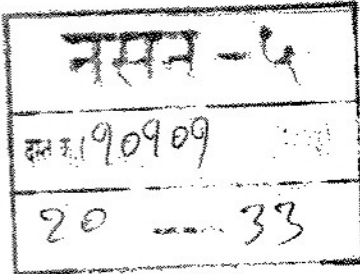 नसन - ५
दस्त क्र. १०१०१
२० --- ३३